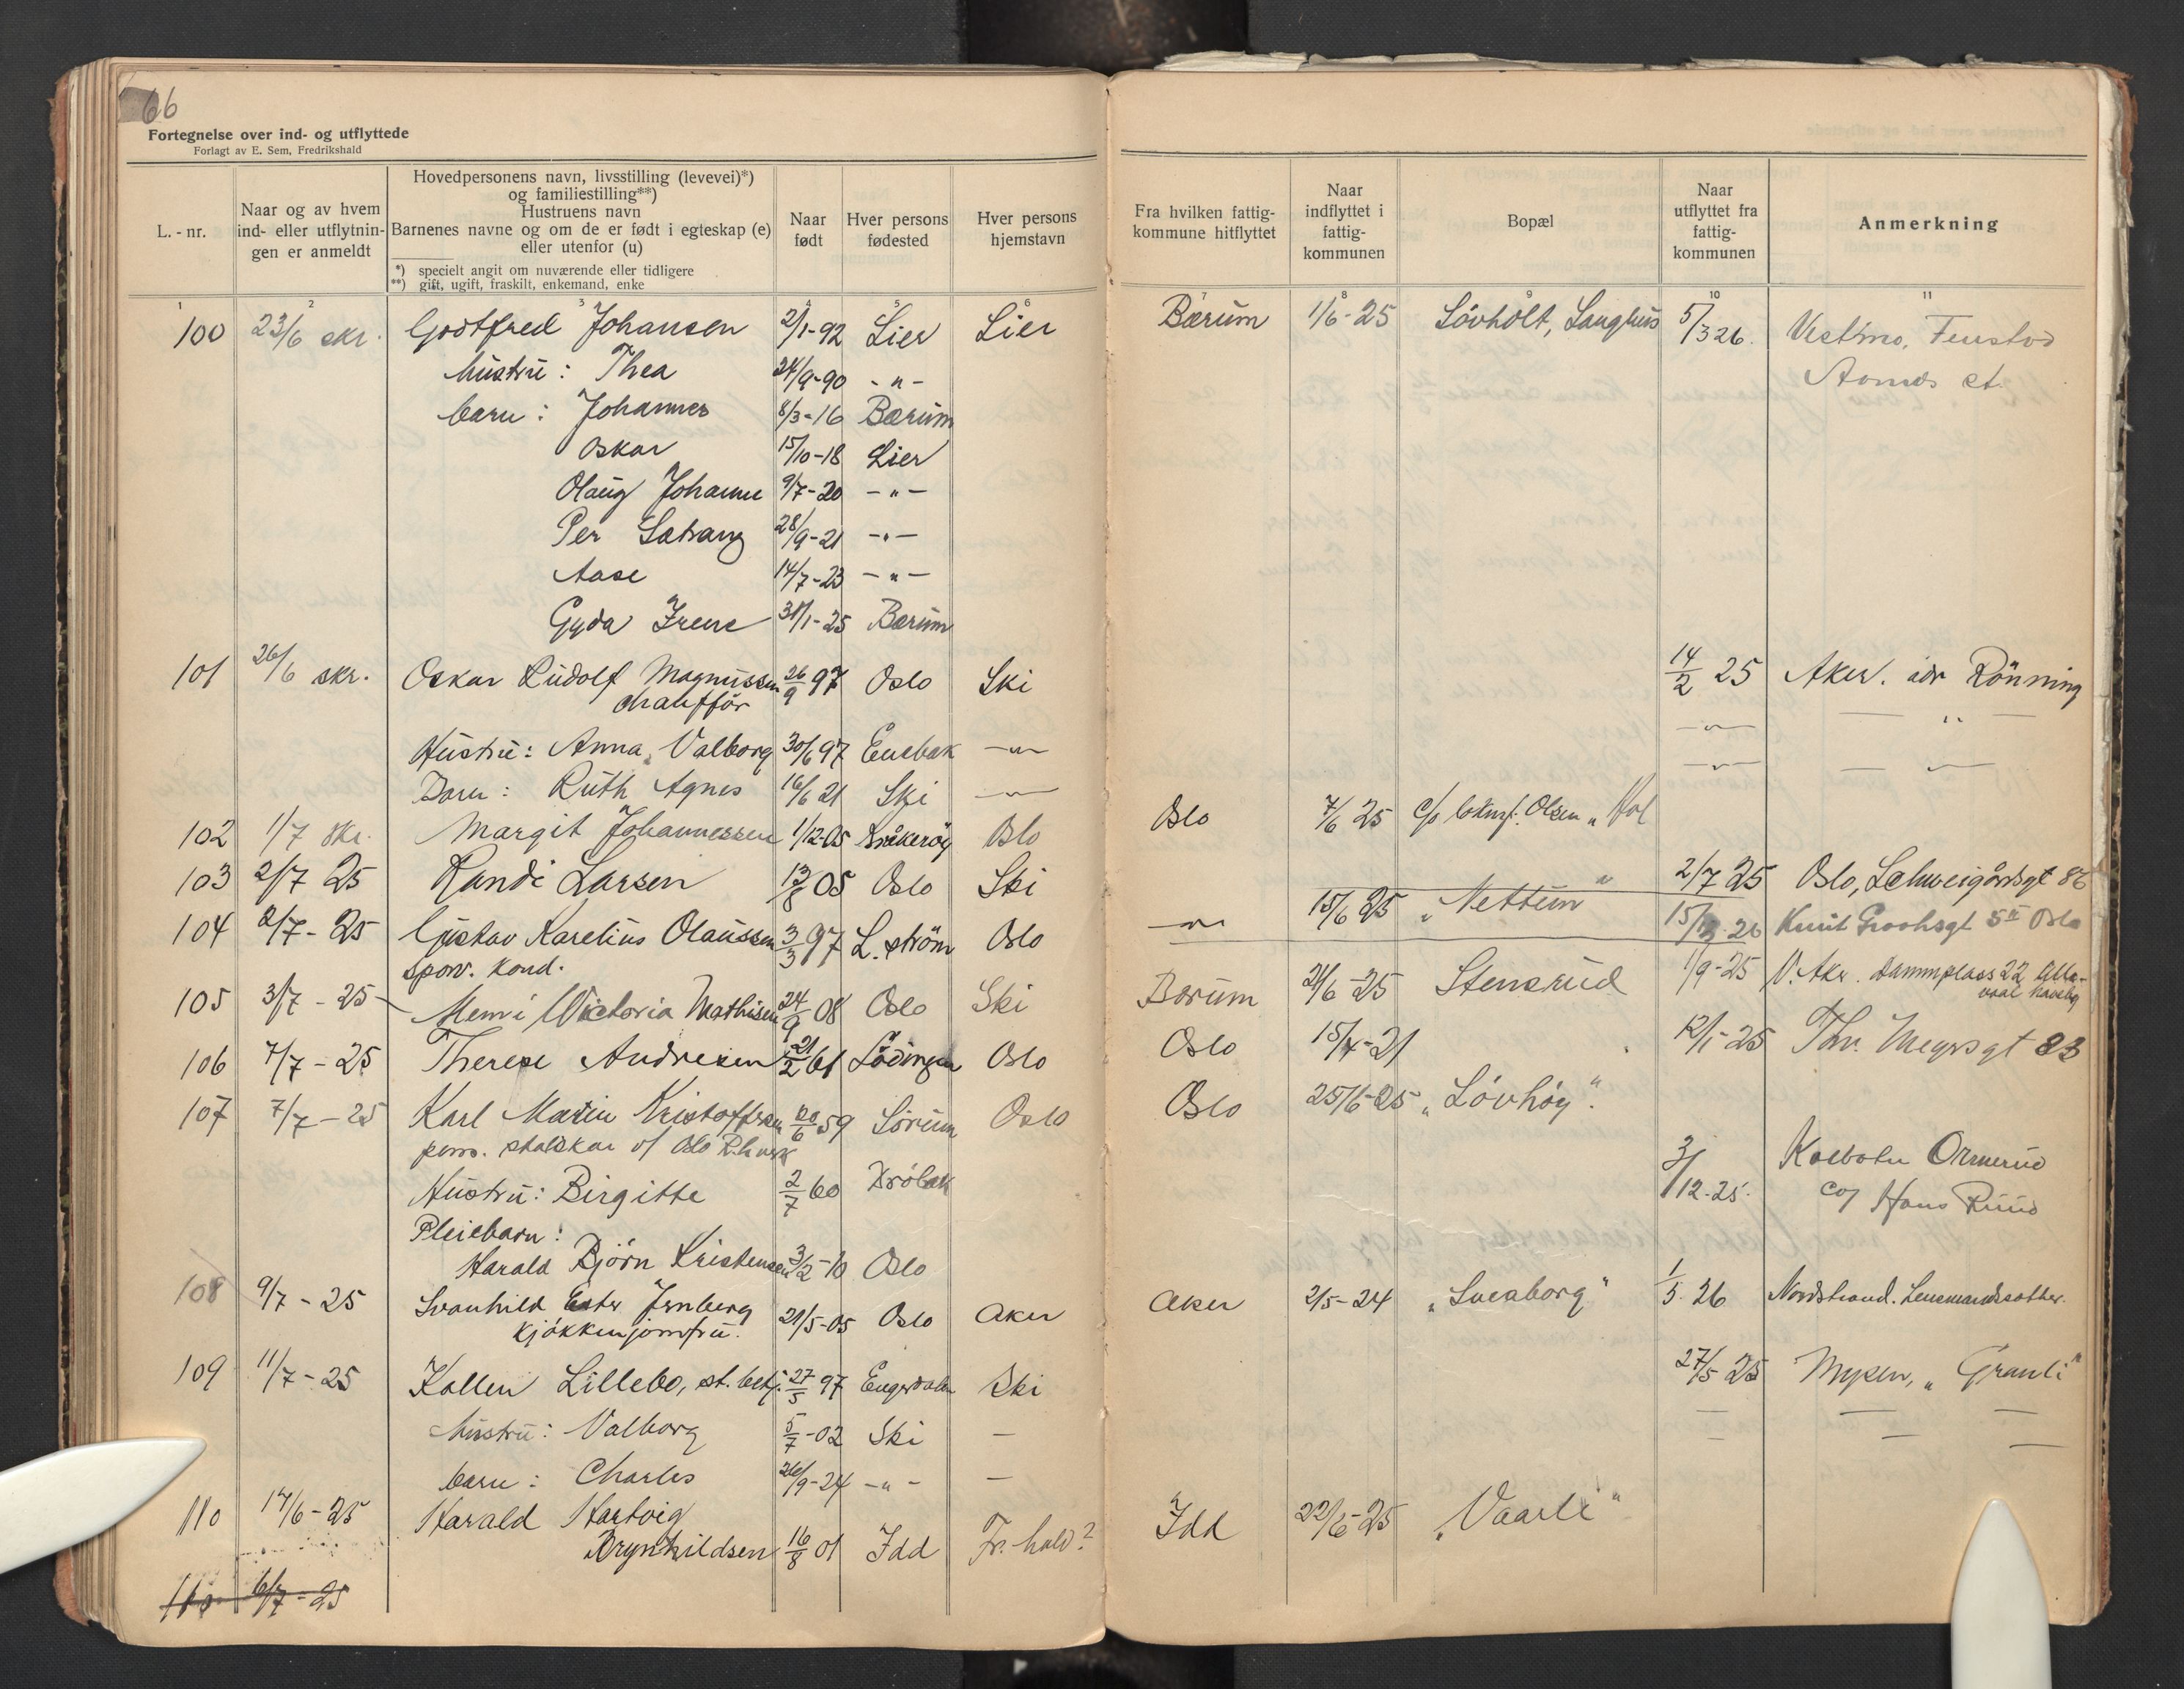 66
Fortegnelse over ind- og utflyttede
Forlagt av E. Sem, Fredrikshald
L. - nr.
Naar og av hvem
ind- eller utflytnin-
gen er anmeldt
Hovedpersonens navn, livsstilling (levevei)*)
og familiestilling**)
Hustruens navn
Barnenes navne og om de er født i egteskap (e)
eller utenfor (u)
*) specielt angit om nuværende eller tidligere
**) gift, ugift, fraskilt, enkemand, enke
Naar
født
Hver persons
fødested
Hver persons
hjemstavn
Fra hvilken fattig-
kommune hitflyttet
Naar
indflyttet i
fattig-
kommunen
Bopæl
Naar
utflyttet fra
fattig-
kommunen
Anmerkning
1 2 3 4 5 6 7 8 9 10 11
100 23/6 skr. Godtfred Johansen 2/1-92 Lier Lier Bærum 1/6-25 Lövholt, Langhus 5/3 26. Vestmo, Fenstad
hustru : Thea 24/9-90 - " - Aarnes st.
barn : Johannes 8/3-16 Bærum
Oskar 15/10-18 Lier
Olaug Johanne 9/7-20 - " -
Per 28/9-21 - " -
Aase 14/7-23 - " -
Gyda Irene 31/1-25 Bærum
101 26/6 skr. Oskar Rudolf Magnussen 26/9 97 Oslo Ski 14/2 25 Aker. adr Rönning
chaufför
— " — — " —
Hustru: Anna Valborg 30/6 97 Enebak — " — — " — — " —
Barn : Ruth Agnes 16/6 21 Ski — " —
102 1/7 skr. Margit Johannessen 1/12-05 Kråkeröy Oslo Oslo 7/6 25 c/o Olsen „Hol"
103 2/7 25 Randi Larsen 13/8 05 Oslo Ski 2/7 25 Oslo, Schweigårdsgt 86
104 2/7-25 Gustav Karelius Olaussen 3/3 97 L. ström Oslo — " — 15/6 25 „Nettum" 26 Knut Oslo
sporv. kond.
105 3/7-25 Victoria Mathisen 24/9 08 Oslo Ski Bærum 24/6-25 Stensrud 1/9-25 V. Aker. Damplass 22
106 7/7-25 Therese Andresen 21/2 61 Lödingen Oslo Oslo 15/4-21 12/1-25 Thv. Meyersgt 83
107 7/7-25 Karl Martin Kristoffersen 20/6 59 Sörum Oslo Oslo 25/6-25 „Lövhöy".
pens. v/ Oslo
3/12-25. Kolbotn Ormerud
Hustru: Birgitte 2/7 60 Dröbak c/o Hans Ruud
Pleiebarn :
Harald Björn Kristensen 3/2-10 Oslo
108 9/7-25 Svanhild Ester Jernberg 21/5-05 Oslo Aker Aker 2/5-24 „Sveaborg" 1/5 26 Nordstrand. Lensmandssæther.
kjökkenjomfru.
109 11/7-25 Kallen Lillebo, st. betj. 27/5 97 Engerdalen Ski 27/5 25 Mysen, „Granli"
hustru : Valborg 5/7-02 Ski — — — —
barn : Charles 26/9-24 - " - — — — —
110 17/6-25 Harald Hartvig
Brynhildsen 16/8 01 Idd Fr. hald? Idd 22/6-25 „Vaarli"
110 6/7-25